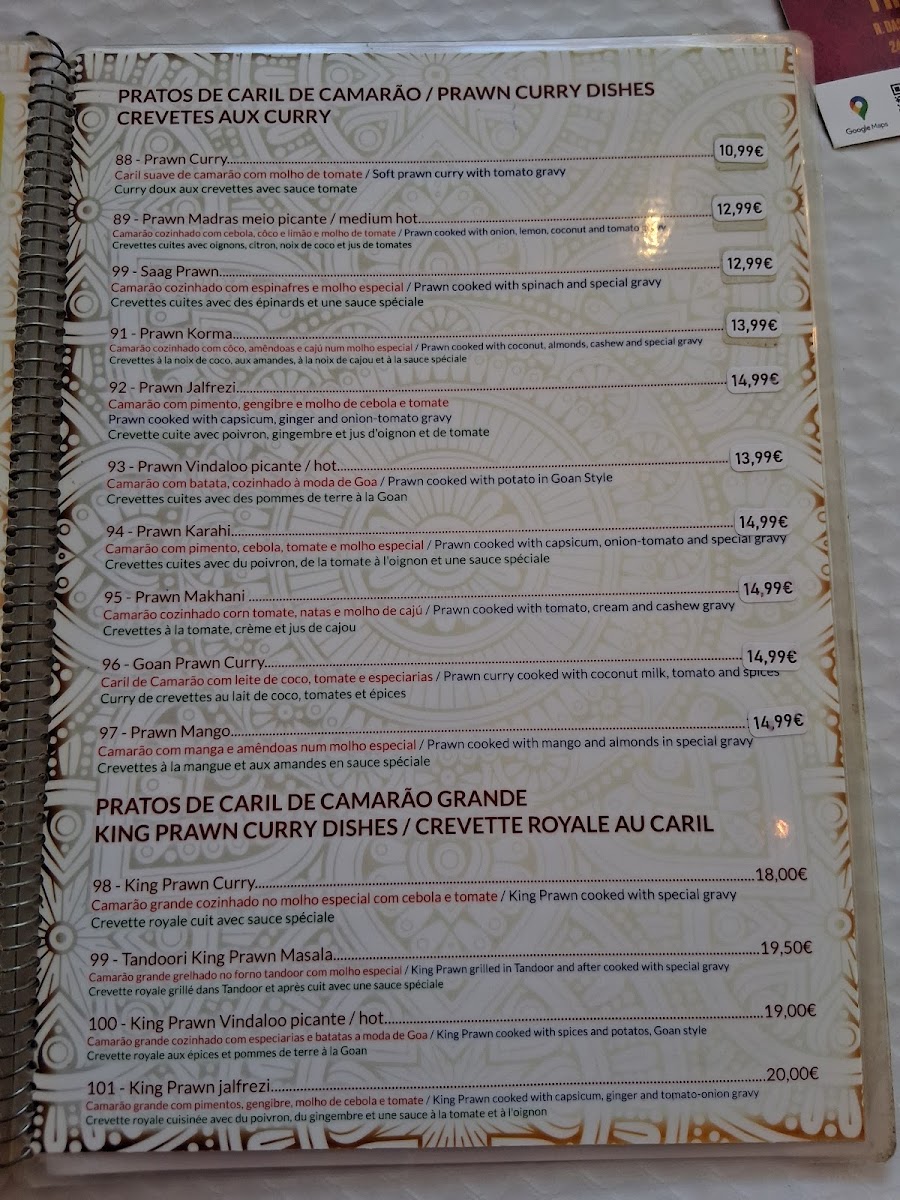 PRATOS DE CARIL DE CAMARÃO / PRAWN CURRY DISHES
CREVETES AUX CURRY
88 - Prawn Curry 10,99€
Caril suave de camarão com molho de tomate / Soft prawn curry with tomato gravy
Curry doux aux crevettes avec sauce tomate
89 - Prawn Madras meio picante / medium hot 12,99€
Camarão cozinhado com cebola, côco e limão e molho de tomate / Prawn cooked with onion, lemon, coconut and tomato
Crevettes cuites avec oignons, citron, noix de coco et jus de tomates
99 - Saag Prawn 12,99€
Camarão cozinhado com espinafres e molho especial / Prawn cooked with spinach and special gravy
Crevettes cuites avec des épinards et une sauce spéciale
91 - Prawn Korma 13,99€
Camarão cozinhado com côco, amêndoas e cajú num molho especial / Prawn cooked with coconut, almonds, cashew and special gravy
Crevettes à la noix de coco, aux amandes, à la noix de cajou et à la sauce spéciale
92 - Prawn Jalfrezi 14,99€
Camarão com pimento, gengibre e molho de cebola e tomate
Prawn cooked with capsicum, ginger and onion-tomato gravy
Crevette cuite avec poivron, gingembre et jus d'oignon et de tomate
93 - Prawn Vindaloo picante / hot 13,99€
Camarão com batata, cozinhado à moda de Goa / Prawn cooked with potato in Goan Style
Crevettes cuites avec des pommes de terre à la Goan
94 - Prawn Karahi 14,99€
Camarão com pimento, cebola, tomate e molho especial / Prawn cooked with capsicum, onion-tomato and special gravy
Crevettes cuites avec du poivron, de la tomate à l'oignon et une sauce spéciale
95 - Prawn Makhani 14,99€
Camarão cozinhado corn tomate, natas e molho de cajú / Prawn cooked with tomato, cream and cashew gravy
Crevettes à la tomate, crème et jus de cajou
96 - Goan Prawn Curry 14,99€
Caril de Camarão com leite de coco, tomate e especiarias / Prawn curry cooked with coconut milk, tomato and spices
Curry de crevettes au lait de coco, tomates et épices
97 - Prawn Mango 14,99€
Camarão com manga e amêndoas num molho especial / Prawn cooked with mango and almonds in special gravy
Crevettes à la mangue et aux amandes en sauce spéciale
PRATOS DE CARIL DE CAMARÃO GRANDE
KING PRAWN CURRY DISHES / CREVETTE ROYALE AU CARIL
98 - King Prawn Curry 18,00€
Camarão grande cozinhado no molho especial com cebola e tomate / King Prawn cooked with special gravy
Crevette royale cuit avec sauce spéciale
99 - Tandoori King Prawn Masala 19,50€
Camarão grande grelhado no forno tandoor com molho especial / King Prawn grilled in Tandoor and after cooked with special gravy
Crevette royale grillé dans Tandoor et après cuit avec une sauce spéciale
100 - King Prawn Vindaloo picante / hot 19,00€
Camarão grande cozinhado com especiarias e batatas a moda de Goa / King Prawn cooked with spices and potatos, Goan style
Crevette royale aux épices et pommes de terre à la Goan
101 - King Prawn jalfrezi 20,00€
Camarão grande com pimentos, gengibre, molho de cebola e tomate / King Prawn cooked with capsicum, ginger and tomato-onion gravy
Crevette royale cuisinée avec du poivron, du gingembre et une sauce à la tomate et à l'oignon
Google Maps